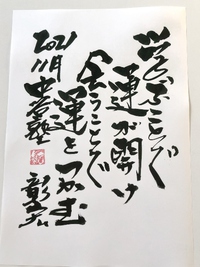 学ぶことで
運が開け
会うことで
運をつかむ
2021
11月